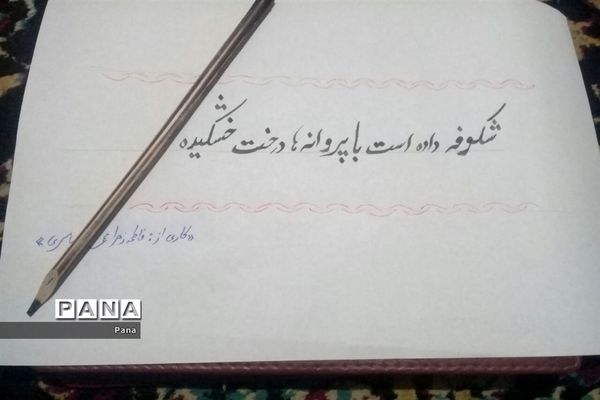 شکوفه داده است با پروانه ها درخت خشکیده
«کاری از: فاطمه زهرا
PANA
Pana